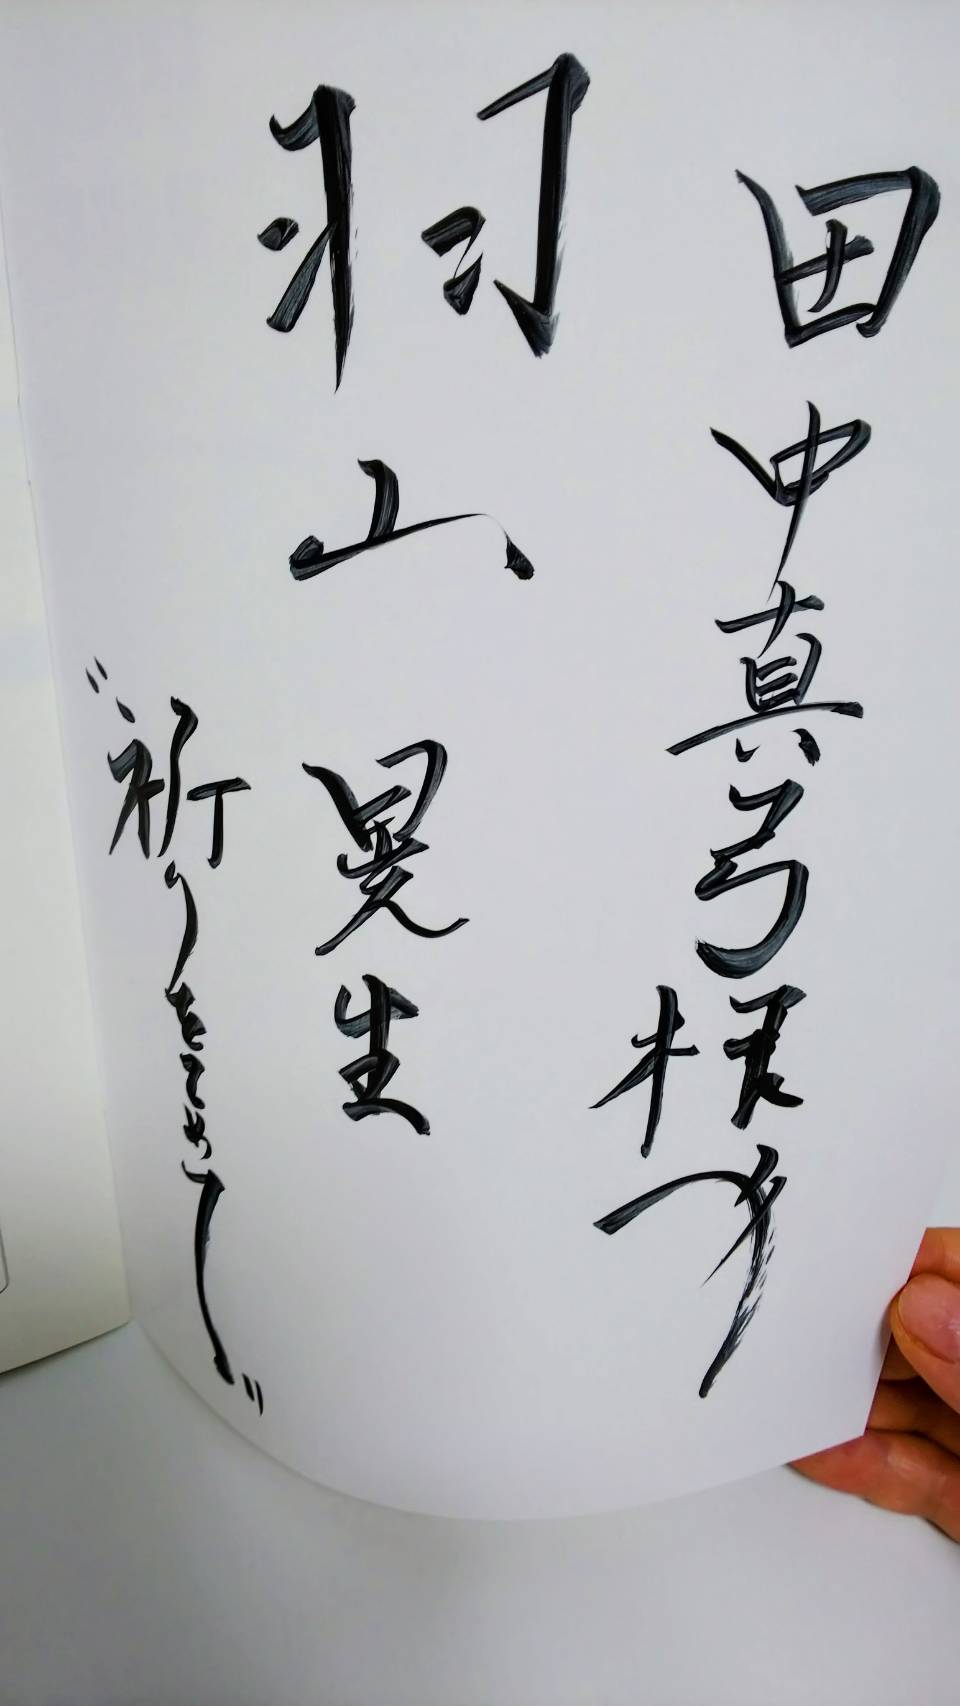 田中真弓様へ
羽山晃生
〝祈りをこめて〟